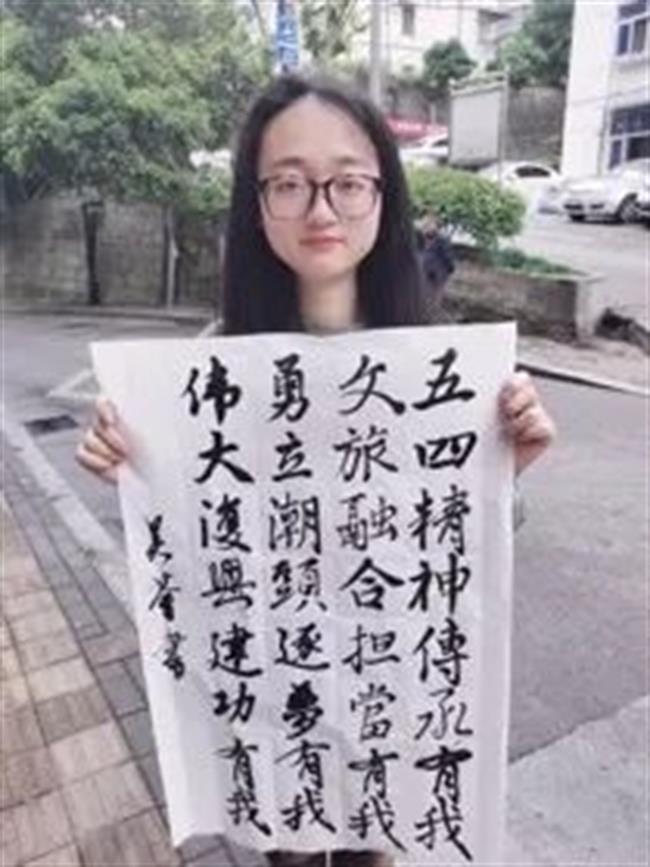 五四精神傳承有我
文旅融合担當有我
勇立潮頭逐夢有我
伟大復興建功有我
吴莹書